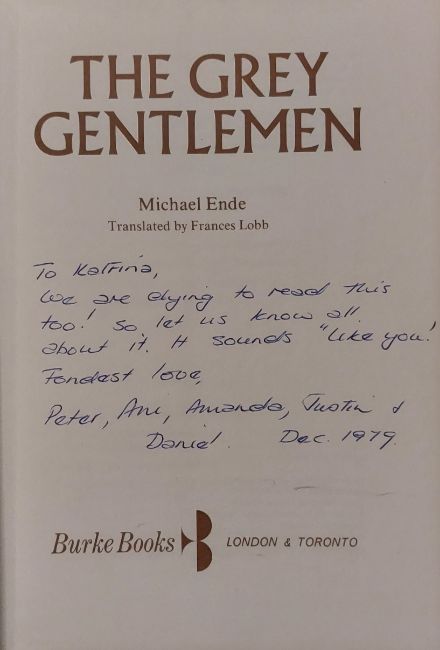 THE GREY
GENTLEMEN
Michael Ende
Translated by Frances Lobb
To Katrina,
We are dying to read this
too! So let us know all
about it. It sounds "like you!
Fondest love,
Peter, Ani, Amanda, Justin &
Daniel. Dec. 1979.
Burke Books LONDON & TORONTO